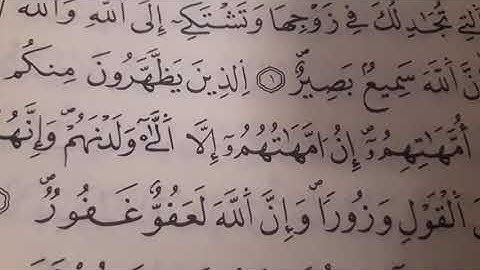 لتِے تُجَٰدِلُكَ فِے زَوْجِهَا وَتَشْتَكِےٓ إِلَى اَللَّهِ وَاللَّهُ
نَّ اَللَّهَ سَمِيعُۢ بَصِيرٌ ١ اِ۬لذِينَ يَظَّهَّرُونَ مِنكُم
أُمَّهَٰتِهِمُۥٓ إِنُ امَّهَٰتُهُمُۥٓ إِلَّا اَلَّٰٓے وَلَدْنَهُمْ وَإِنَّهُ
اَلْقَوْلِ وَزُوراً وَإِنَّ اَللَّهَ لَعَفُوٌّ غَفُورٌ